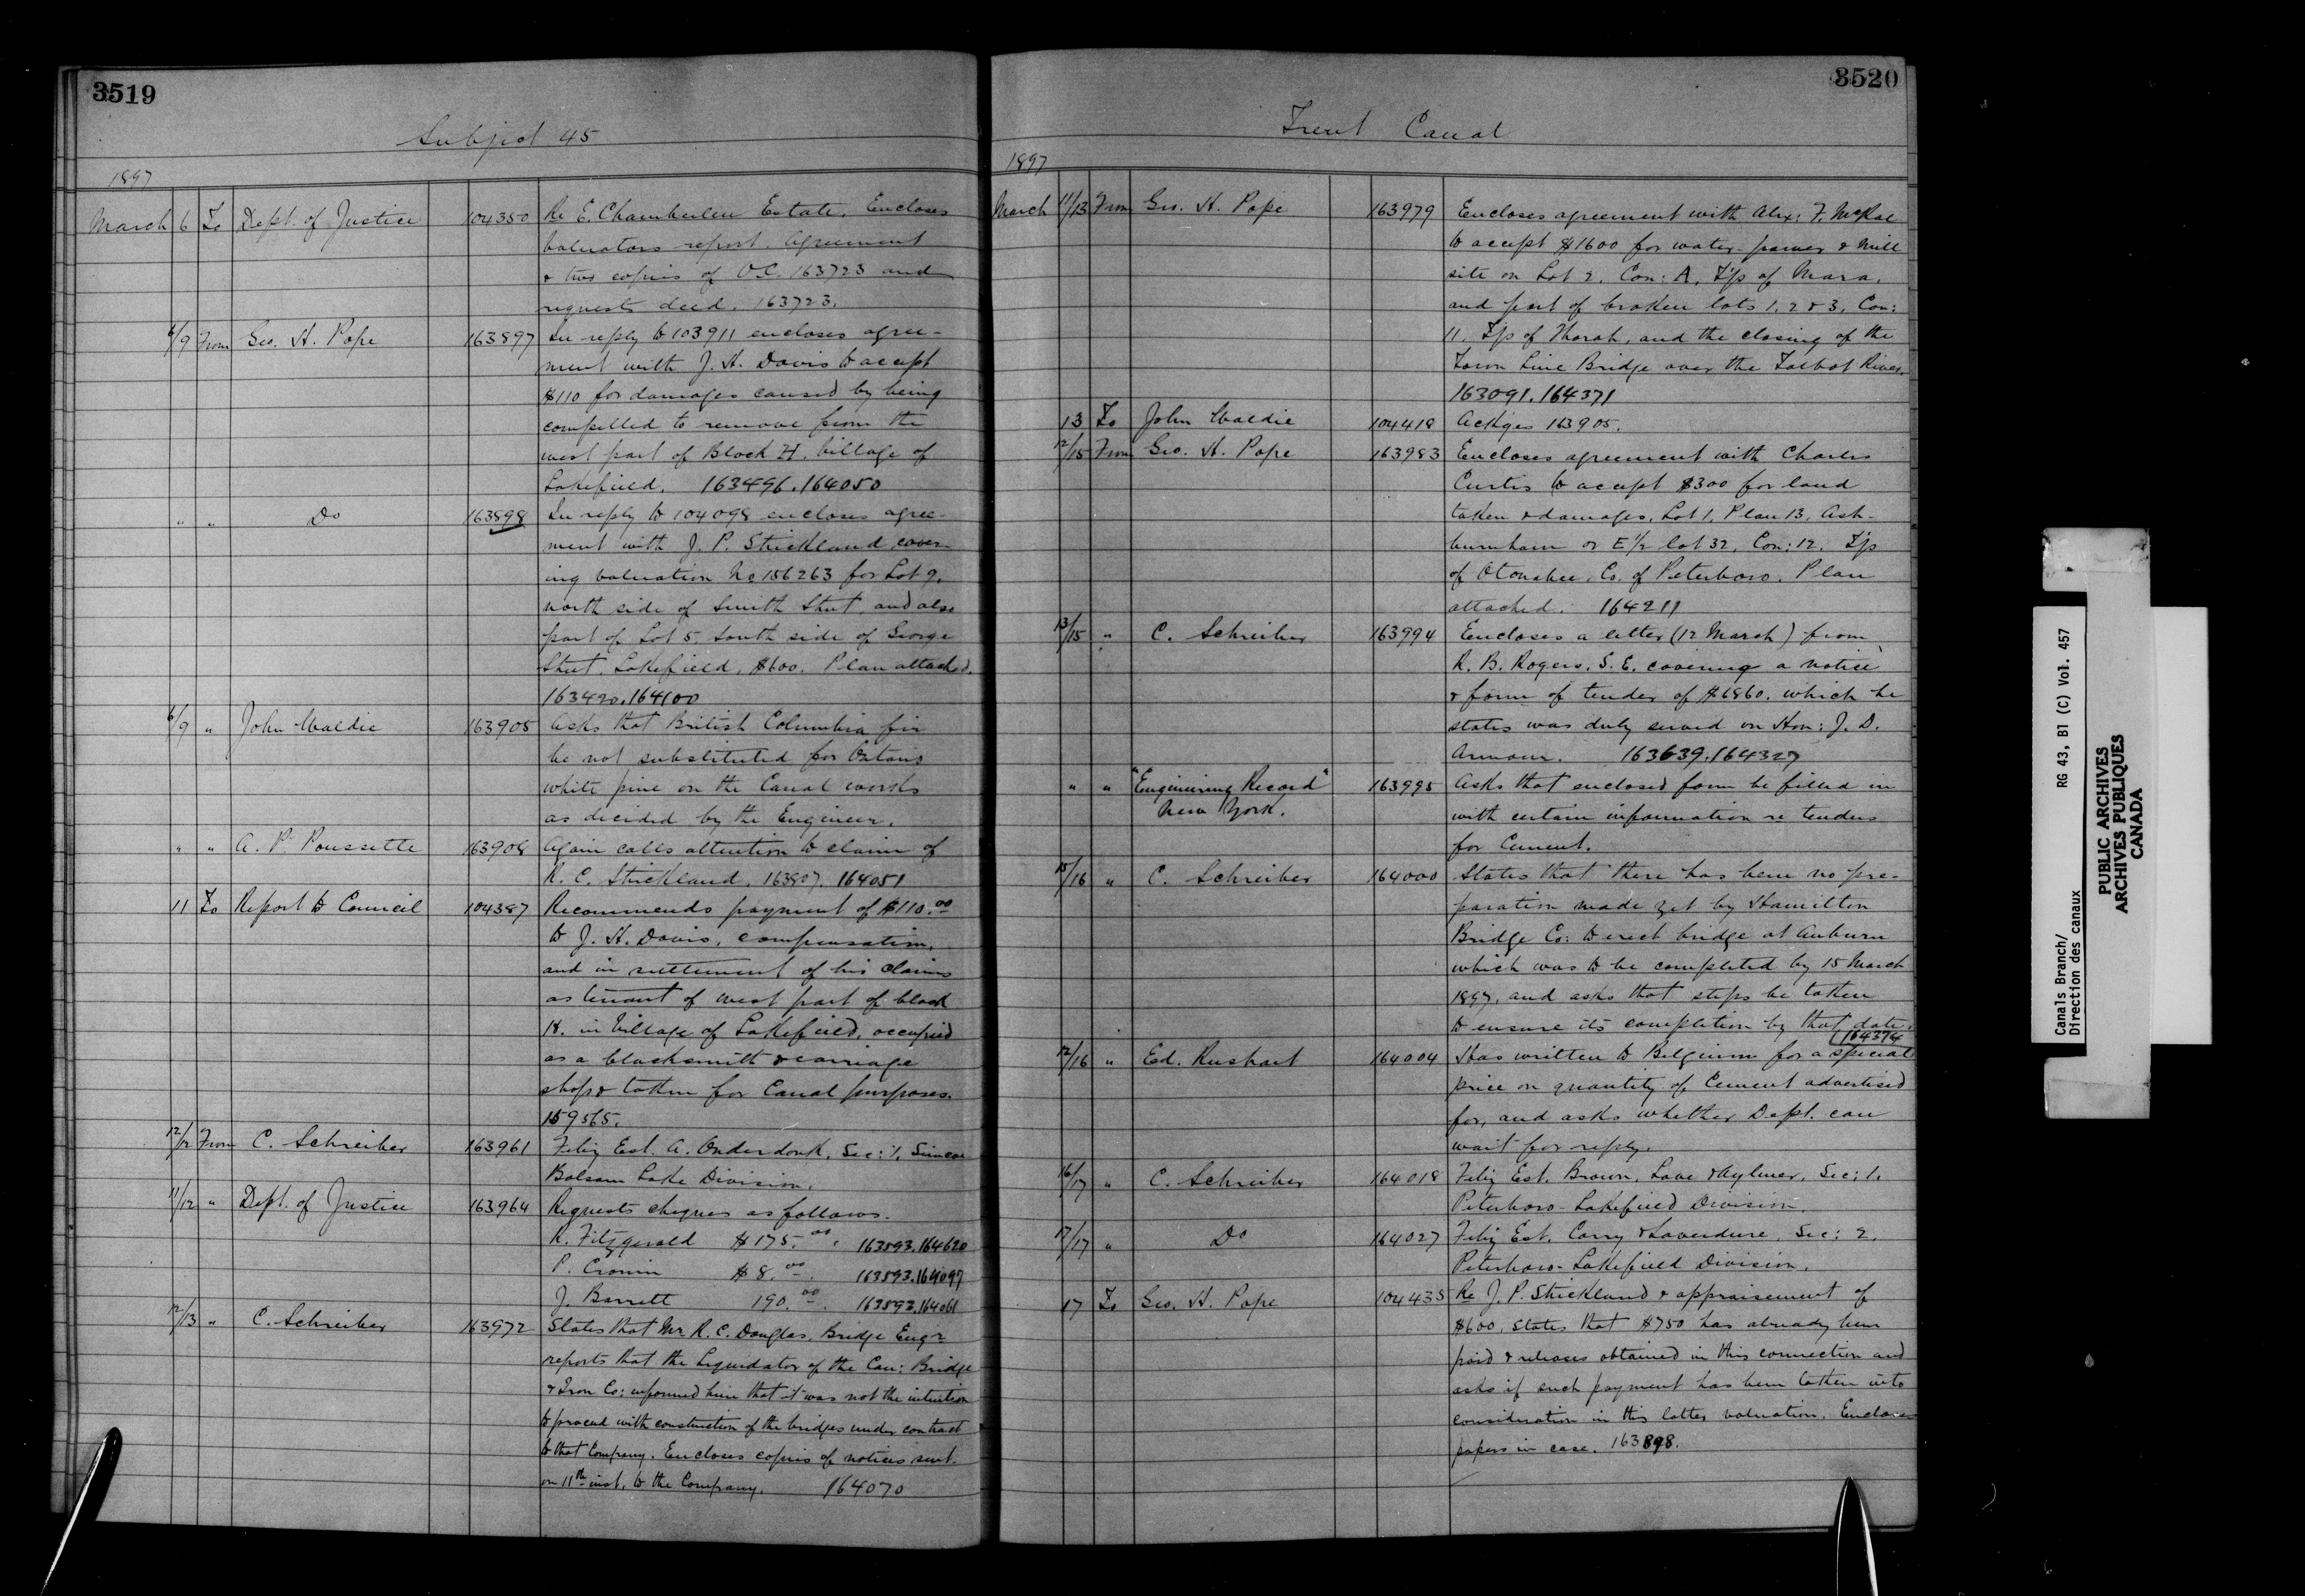 3519
Subject 45
1897
March 6 To Dept. of Justice 104350 Re E. Chamberlen Estate. Encloses
valuators report. Agreement
& two copies of O.C. 163723 and
requests deed. 163723.
6/9 From Geo. H. Pope 163897 In reply to 103911 encloses agree-
ment with J. H. Davis to accept
$110 for damages caused by being
compelled to remove from the
west part of Block H. Village of
Lakefield. 163496.164050
" " Do 163898 In reply to 104098 encloses agree-
ment with J. P. Strickland cover-
ing valuation No 156263 for Lot 9.
north side of Smith Street, and also
part of Lot 5, South side of George
Street, Lakefield, $600. Plan attached.
163420.164100
6/9 " John Waldie 163905 Asks that British Columbia fir
be not substituted for Ontario
white pine on the Canal works
as decided by the Engineer.
" " A. P. Poussette 163908 Again calls attention to claim of
R. C. Strickland. 163807. 164051
11 To Report to Council 104387 Recommends payment of $110.00
to J. H. Davis, compensation,
and in settlement of his claims
as tenant of west part of block
H. in Village of Lakefield, occupied
as a blacksmith & carriage
shop & taken for Canal purposes.
159565.
12/12 From C. Schreiber 163961 Fby Est. A. Onderdonk, Sec: 1, Simcoe
Balsam Lake Division.
11/12 " Dept. of Justice 163964 Requests cheques as follows.
R. Fitzgerald $175.00. 163593.164620
P. Cronin $8.00. 163593.164097
J. Barrett 190.00. 163593.164061
12/13 " C. Schreiber 163972 States that Mr R. C. Douglas, Bridge Engr
reports that the Liquidator of the Can: Bridge
& Iron Co: informed him that it was not the intention
to proceed with construction of the bridges under contract
to that Company. Encloses copies of notices sent
on 11th inst. to the Company. 164070
3520
Trent Canal
1897
March 11/13 From Geo. H. Pope 163979 Encloses agreement with Alex: F. McRae
to accept $1600 for water-power & mill
site on Lot 2, Con: A, T'p of Mara,
and part of broken lots 1, 2 & 3, Con:
11. T'p of Thorah, and the closing of the
Town Line Bridge over the Talbot River.
163091.164371
13 To John Waldie 104418 Ackges 163905.
12/15 From Geo. H. Pope 163983 Encloses agreement with Charles
Curtis to accept $300 for land
taken & damages, Lot 1, Plan 13, Ash-
burnham or E 1/2 lot 32, Con: 12. T'p
of Otonabee, Co. of Peterboro. Plan
attached. 164211
13/15 " C. Schreiber 163994 Encloses a letter (12 March) from
R. B. Rogers, S. E. covering a notice
& form of tender of $6860. which he
states was duly served on Hon: J. D.
Armour. 163639.164327
" " "Engineering Record" 163995 Asks that enclosed form be filled in
New York. with certain information re tenders
for Cement.
15/16 " C. Schreiber 164000 States that there has been no pre-
paration made yet by Hamilton
Bridge Co: to erect bridge at Auburn
which was to be completed by 15 March
1897, and asks that steps be taken
to ensure its completion by that date.
164374
12/16 " Ed. Rushart 164004 Has written to Belgium for a special
price on quantity of Cement advertised
for, and asks whether Dept. can
wait for reply.
16/17 " C. Schreiber 164018 Fby Est. Brown, Love & Aylmer, Sec: 1.
Peterboro-Lakefield Division.
17/17 " Do 164027 Fby Est. Corry & Laverdure. Sec: 2.
Peterboro-Lakefield Division.
17 To Geo. H. Pope 104435 Re J. P. Strickland & appraisement of
$600, states that $750 has already been
paid & releases obtained in this connection and
asks if such payment has been taken into
consideration in this latter valuation. Encloses
papers in case. 163898.
Canals Branch/ RG 43, B1 (C) Vol. 457
Direction des canaux
PUBLIC ARCHIVES
ARCHIVES PUBLIQUES
CANADA